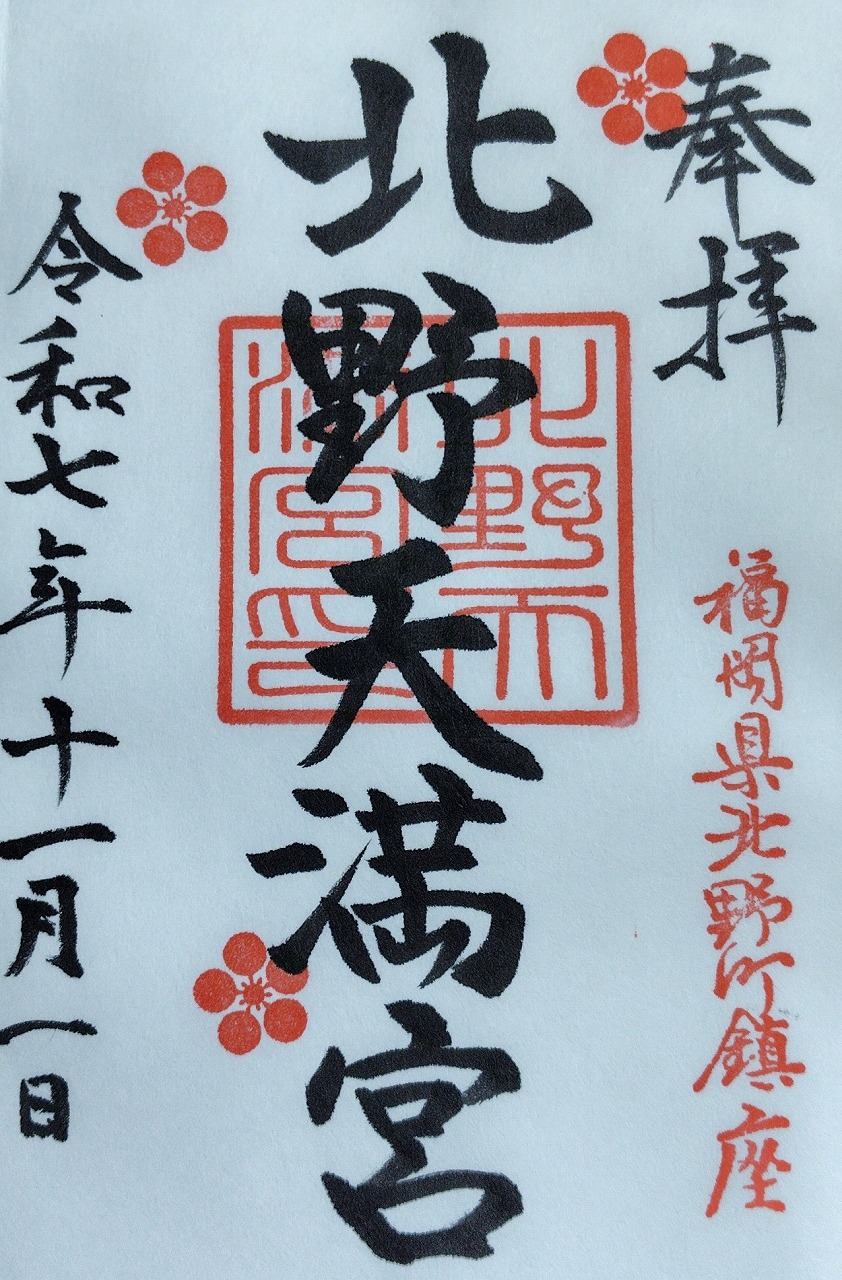 奉拝
福岡県北野町鎮座
北野天満宮
北野天満宮印
令和七年十一月一日